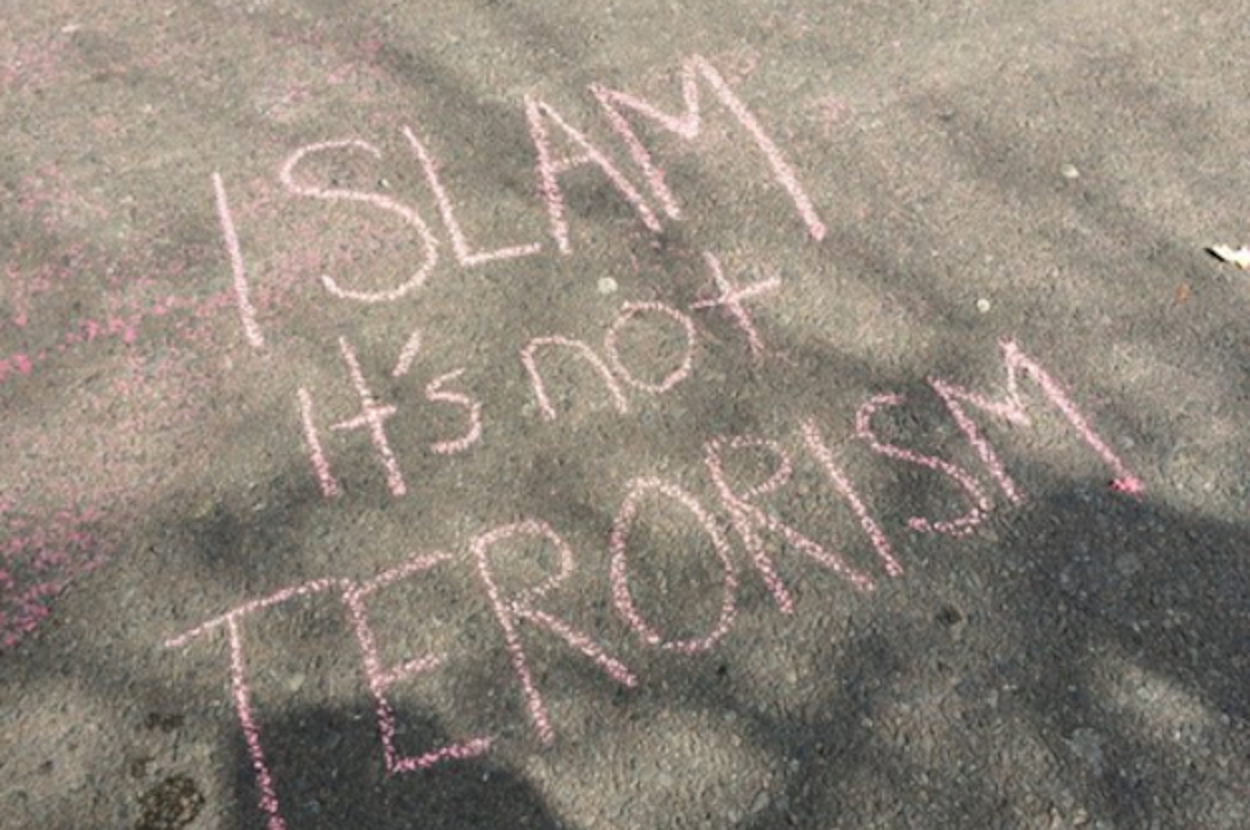 ISLAM
It's not
TERORISM